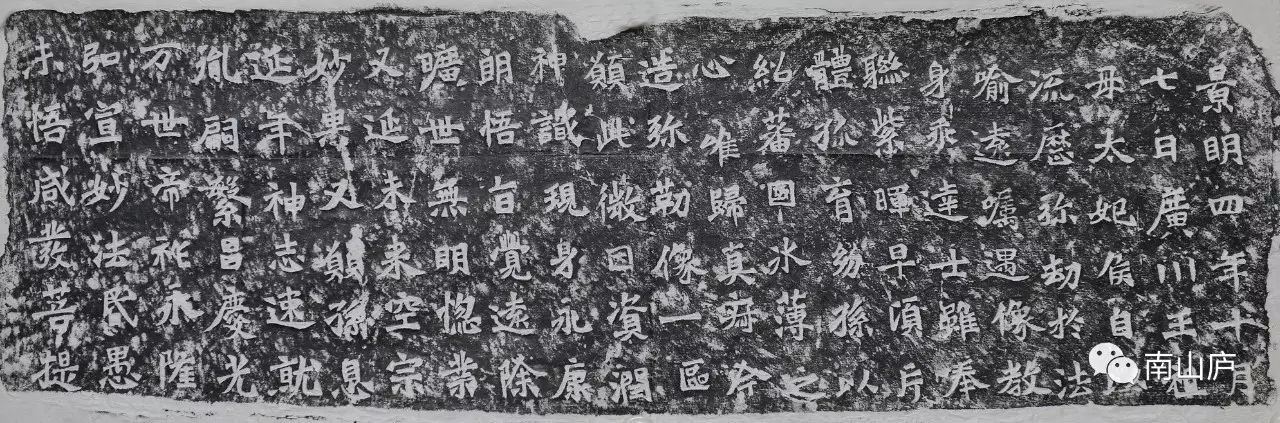 景明四年十月
七日廣川王祖
母太妃侯自
流歷弥劫於法
喻遠囑遇像教
身乖達士雖奉
聯紫暉早頃片
體孤育紛孫以
紹蕃國氷薄之
心唯歸真寂今
造弥勒像一區
願此微因資潤
神識現身永康
朗悟旨覺遠除
曠世無明惚業
又延未來空宗
妙果又願孫息
延年神志速就
胤嗣繁昌慶光
万世帝祚永隆
弘宣妙法昏愚
未悟咸發菩提
南山庐